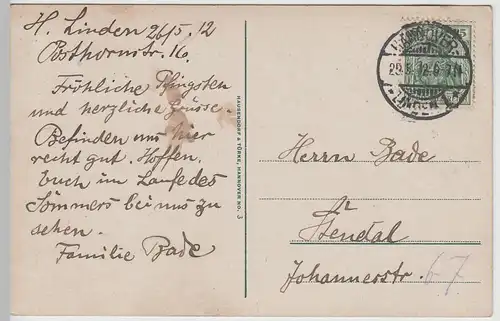 H. Linden 26/5. 12
Posthornstr. 16.
Fröhliche Pfingsten
und herzliche Grüsse.
Befinden uns hier
recht gut. Hoffen,
Euch im Laufe des
Sommers bei uns zu
sehen.
Familie Bade
HAUSENDORF & TÜRKE, HANNOVER NO. 3
HANNOVER
LINDEN
5
Herrn Bade
Stendal
Johannesstr. 67.